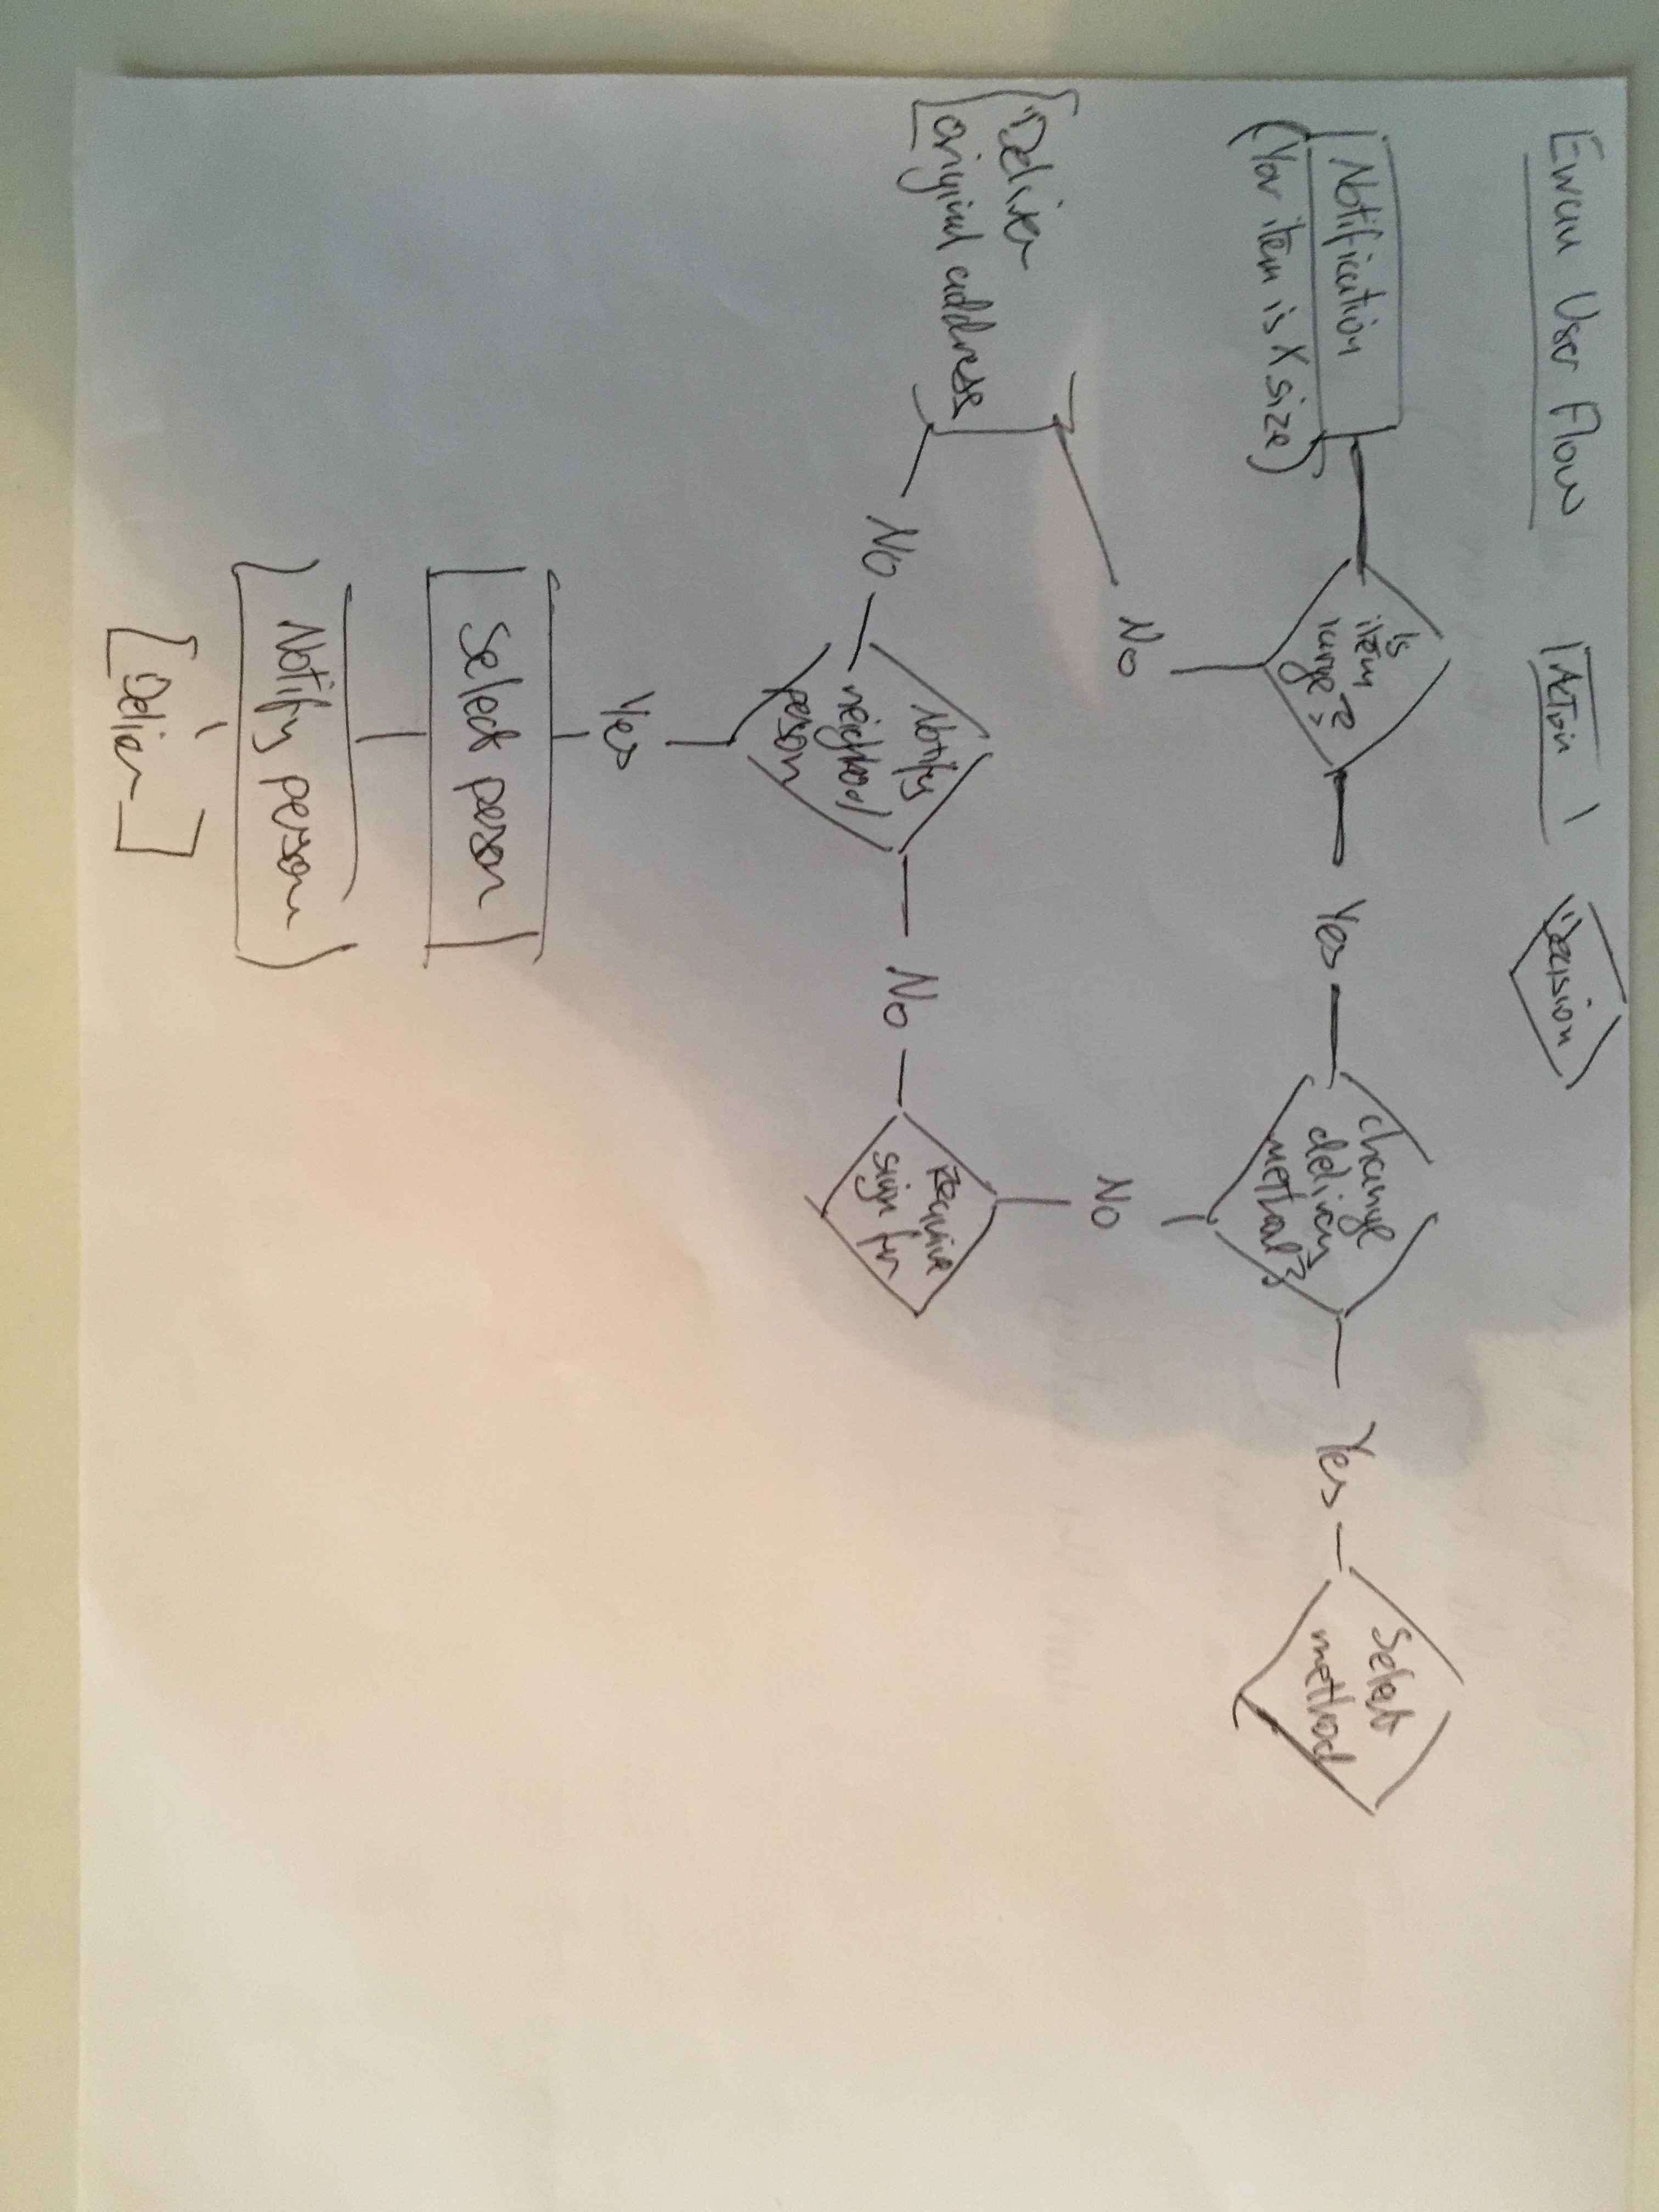 Ewan User Flow
Action
Decision
Notification
(Your item is X size)
Is
item
large?
Yes
change
delivery
method?
Yes
Select
method
No
No
Deliver
original address
No
Notify
neighbod/
person
No
Require
sign for
Yes
Select person
Notify person
Deliver